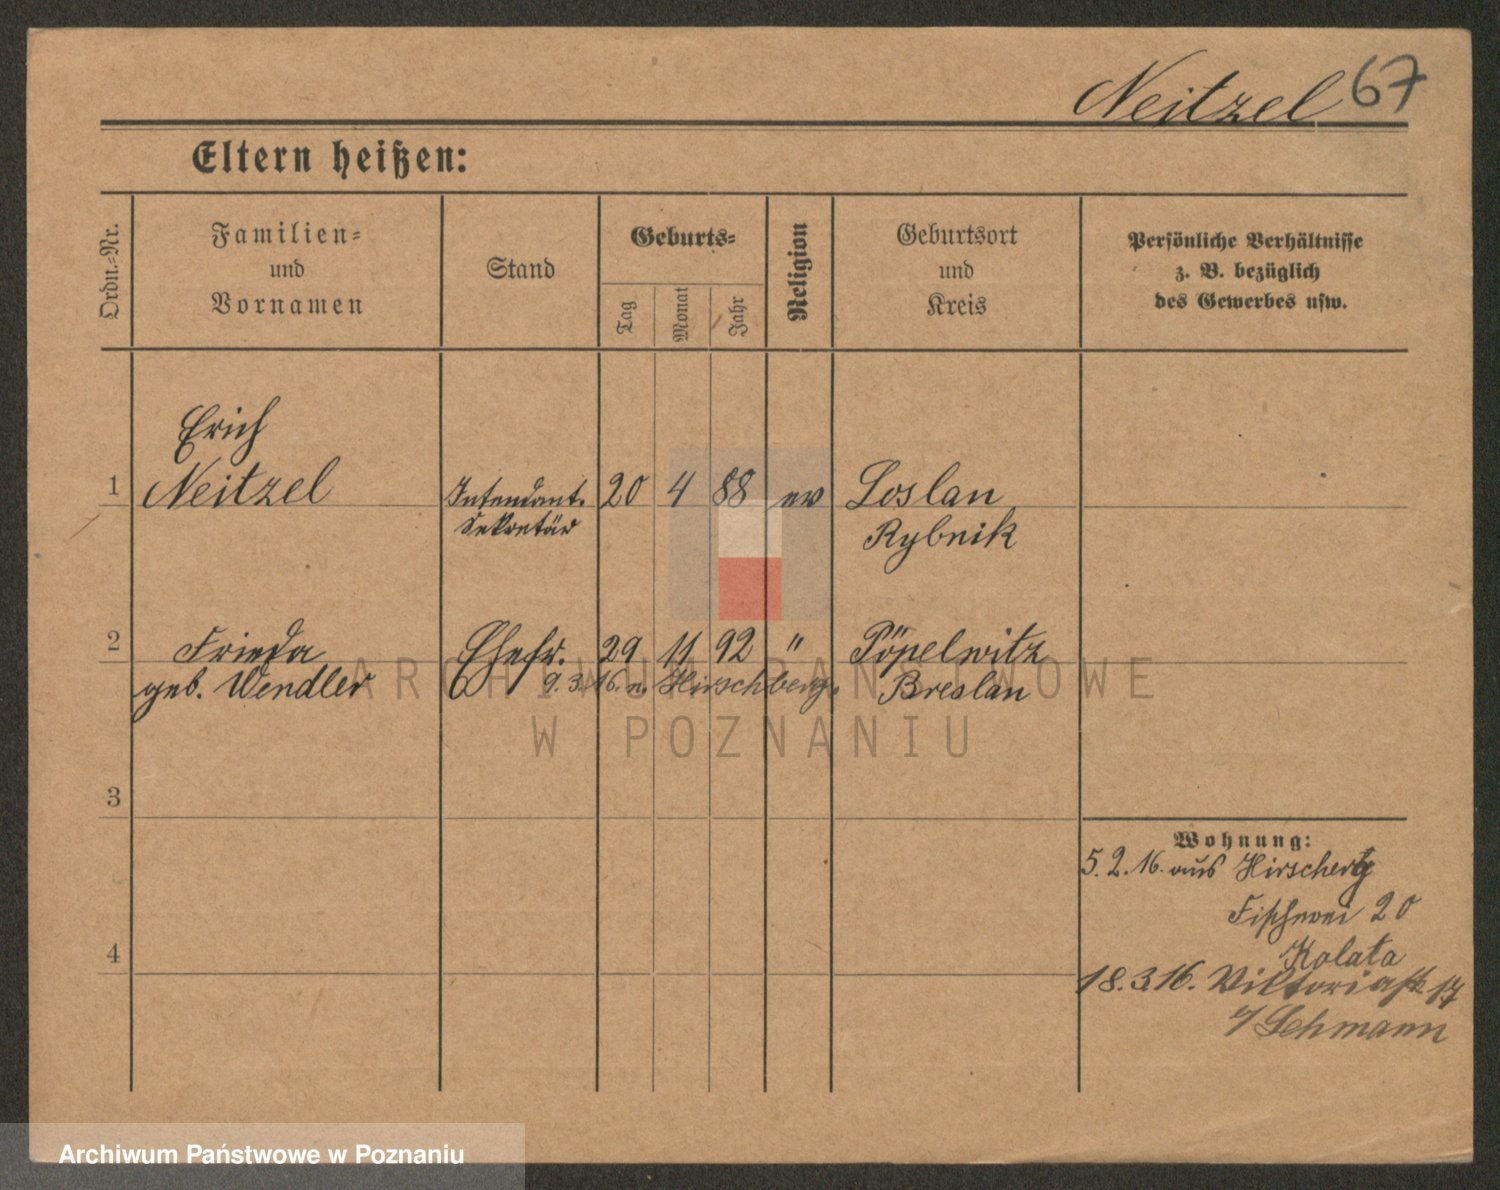 Neitzel 67
Eltern heißen:
Ordn.-Nr.
Familien-
und
Vornamen
Stand
Geburts-
Tag
Monat
Jahr
Religion
Geburtsort
und
Kreis
Persönliche Verhältnisse
z. B. bezüglich
des Gewerbes usw.
Erich
1 Neitzel Intendant. 20 4 88 ev Loslau
Sekretär Rybnik
2 Frieda Ehefr. 29 11 92 " Pöpelwitz
geb. Wendler 9.3.16. n. Hirschberg. Breslau
ARCHIWUM PAŃSTWOWE
W POZNANIU
3
Wohnung:
5.2.16. aus Hirscherg
Fischerei 20
4 Kolata
18.3.16. Viktoriastr 17
b/ Lehmann
Archiwum Państwowe w Poznaniu